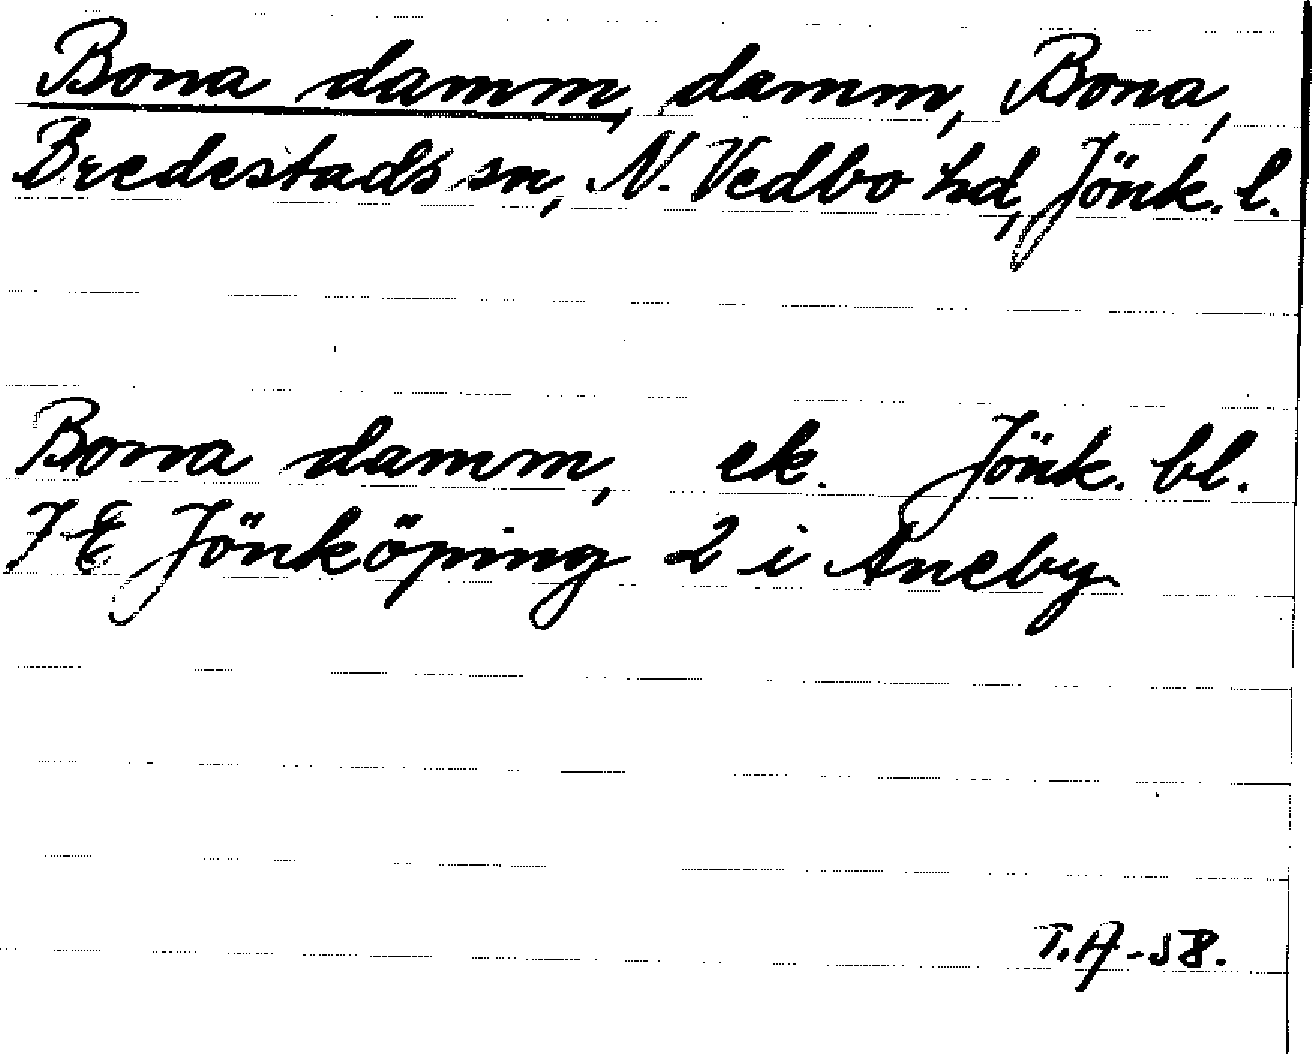 Bona damm, damm, Bona,
Bredestads sn, N. Vedbo hd, Jönk. l.
Bona damm, ek. Jönk. bl.
7 E Jönköping 2 i Aneby
T.A-58.